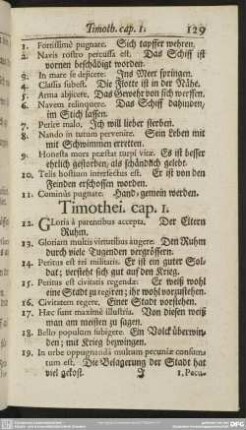 Timoth. cap. 1. 129
1. Fortissimè pugnare. Sich tapffer wehren.
2. Navis rostro percussa est. Das Schiff ist
vornen beschädigt worden.
3. In mare se dejicere. Ins Meer springen.
4. Classis subest. Die Flotte ist in der Nähe.
5. Arma abjicere. Das Gewehr von sich werffen.
6. Navem relinquere. Das Schiff dahinden,
im Stich lassen.
7. Perire malo, Ich will lieber sterben.
8. Nando in tutum pervenire. Sein Leben mit
mit Schwimmen erretten.
9. Honesta mors præstat turpi vitæ. Es ist besser
ehrlich gestorben, als schändlich gelebt.
10. Telis hostium interfectus est. Er ist von den
Feinden erschossen worden.
11. Cominùs pugnare. Hand-gemein werden.
Timothei. cap. 1.
12. GLoria à parentibus accepta. Der Eltern
Ruhm.
13. Gloriam multis virtutibus augere. Den Ruhm
durch viele Tugenden vergrössern.
14. Peritus est rei militaris. Er ist ein guter Sol-
dat; verstehet sich gut auf den Krieg.
15. Peritus est civitatis regendæ. Er weiß wohl
eine Stadt zu regieren; ihr wohl vorzustehen.
16. Civitatem regere. Einer Stadt vorstehen.
17. Hæc sunt maximè illustria. Von diesen weiß
man am meisten zu sagen.
18. Bello populum subigere. Ein Volck überwin-
den; mit Krieg bezwingen.
19. In urbe oppugnandâ multum pecuniæ consum-
tum est. Die Belagerung der Stadt hat
viel gekost. J 1. Pecu-